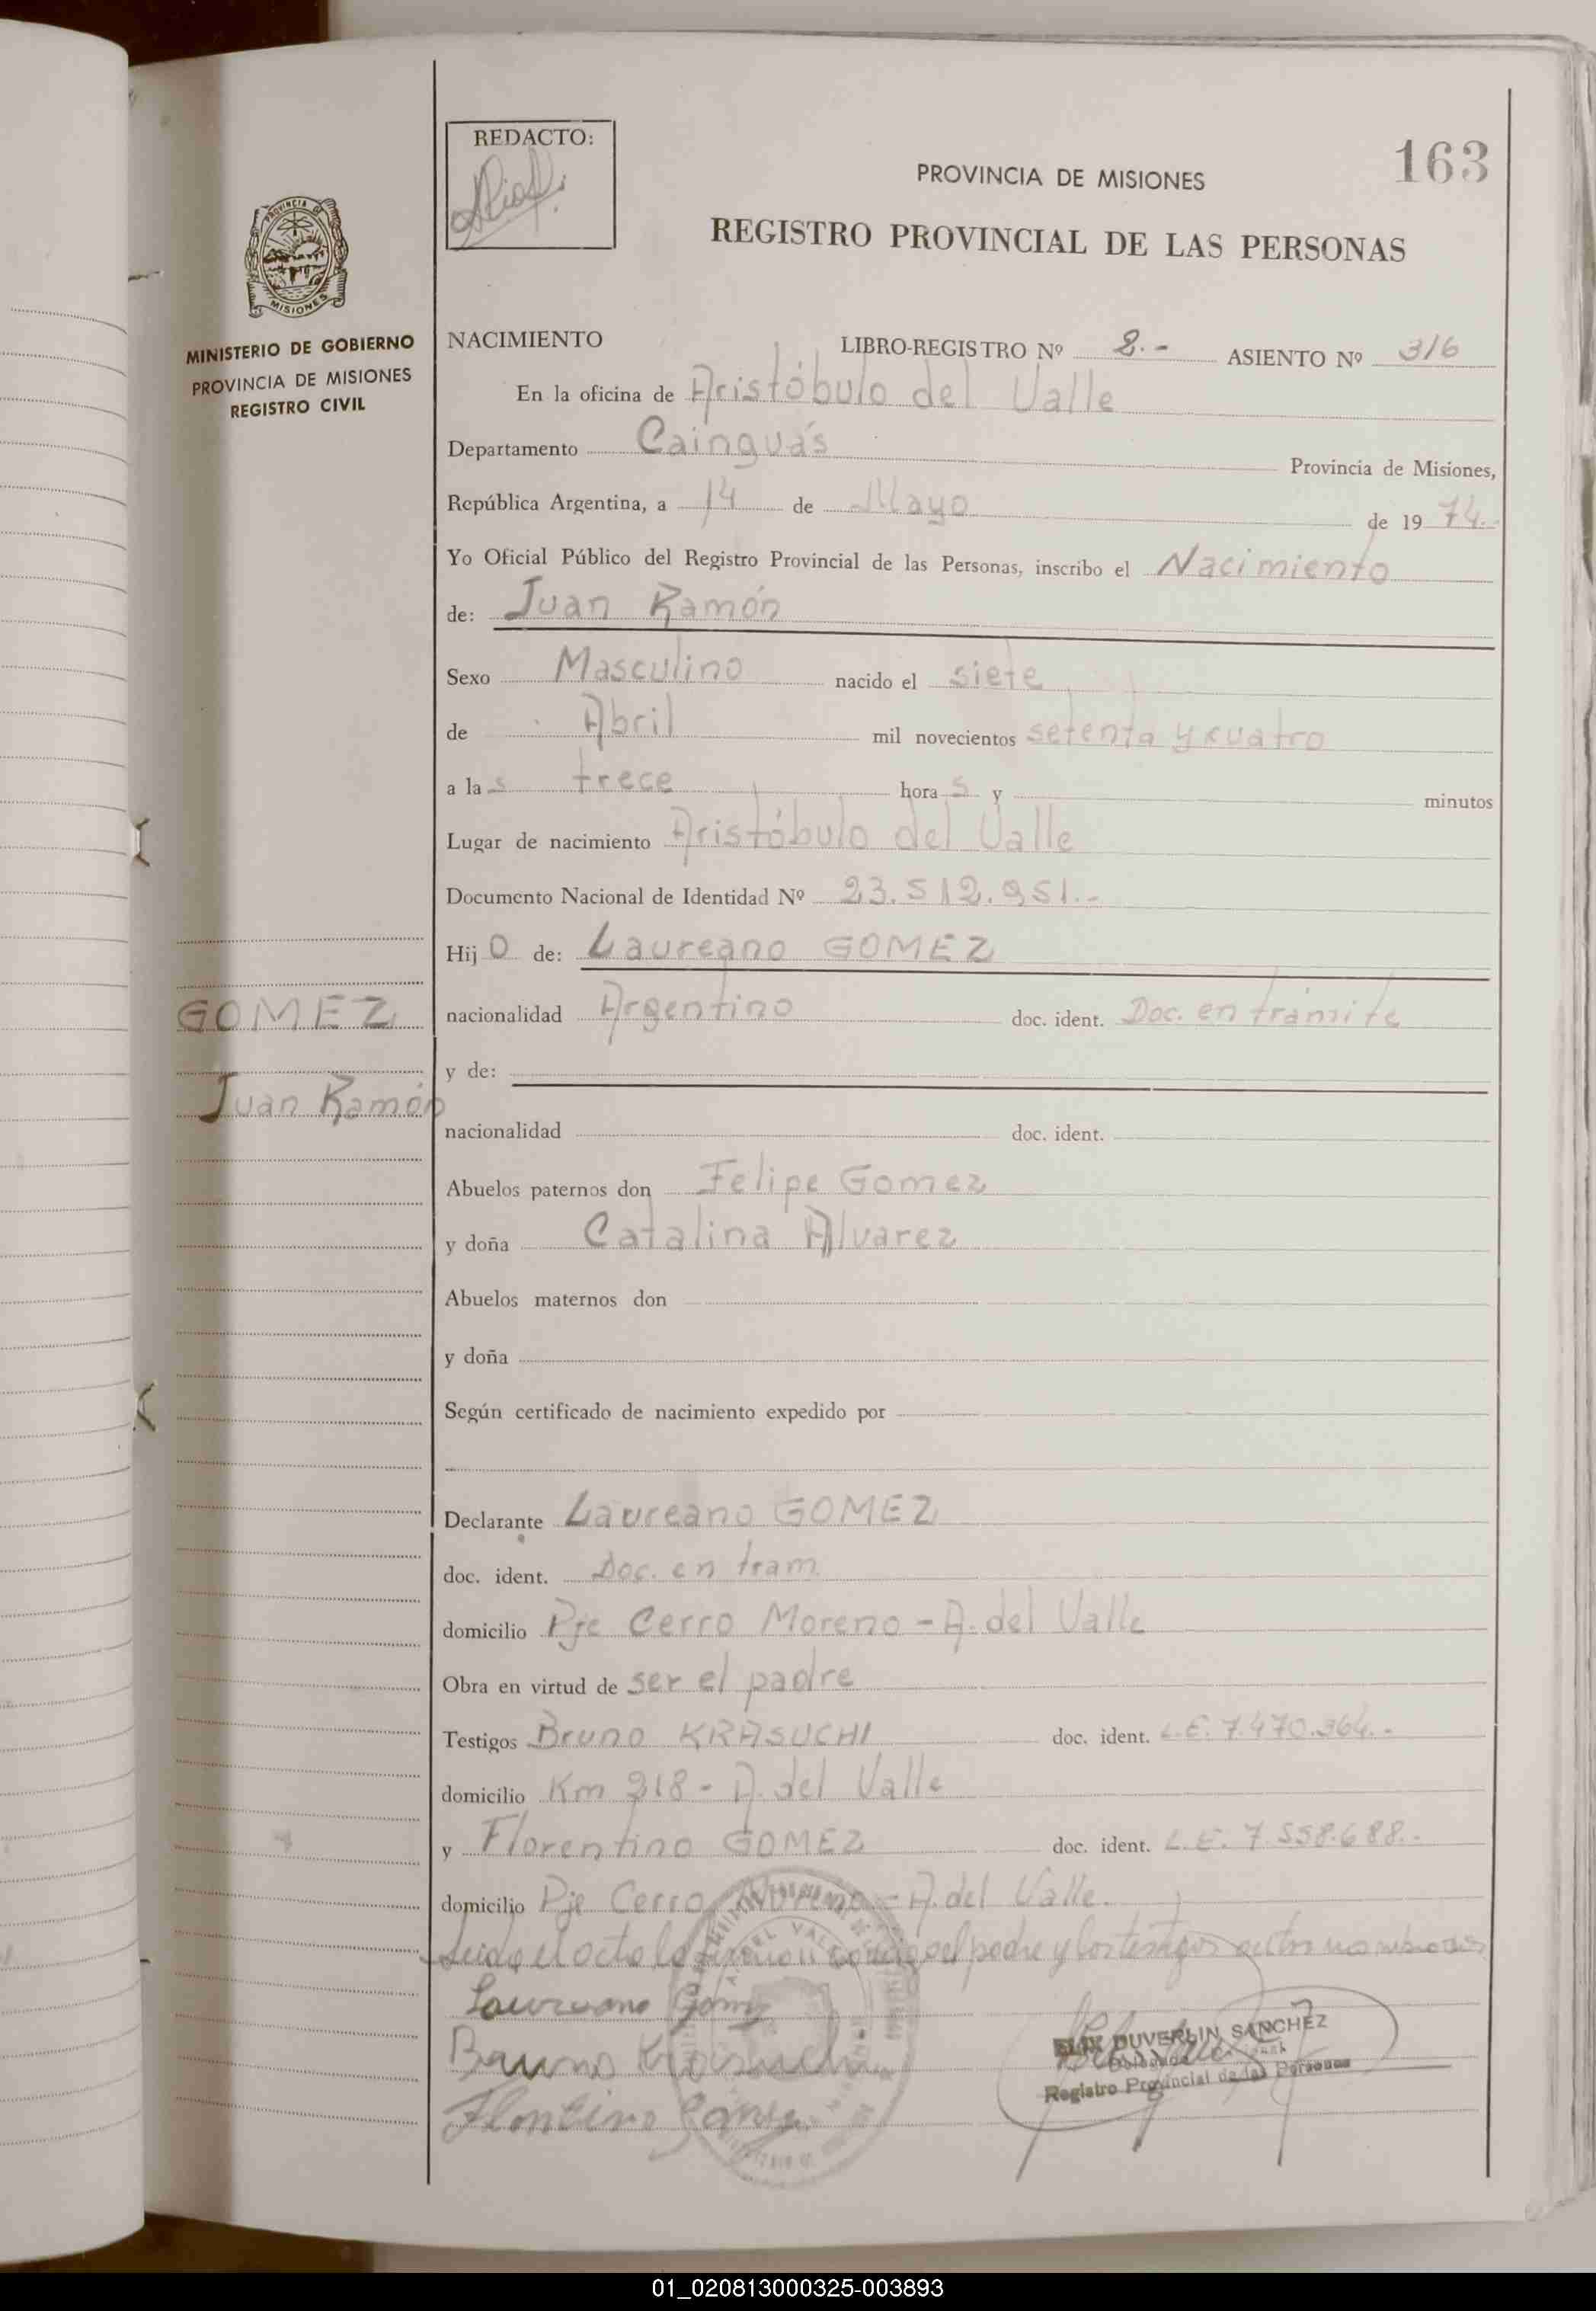 163
REDACTO:
PROVINCIA DE MISIONES
REGISTRO PROVINCIAL DE LAS PERSONAS
PROVINCIA DE
MISIONES
MINISTERIO DE GOBIERNO
PROVINCIA DE MISIONES
REGISTRO CIVIL
NACIMIENTO LIBRO-REGISTRO Nº 2.- ASIENTO Nº 316
En la oficina de Aristóbulo del Valle
Departamento Cainguás Provincia de Misiones,
República Argentina, a 14 de Mayo de 19 74.-
Yo Oficial Público del Registro Provincial de las Personas, inscribo el Nacimiento
de: Juan Ramón
Sexo Masculino nacido el siete
de Abril mil novecientos setenta y cuatro
a la s trece hora s y minutos
Lugar de nacimiento Aristóbulo del Valle
Documento Nacional de Identidad Nº 23.512.951.-
Hij o de: Laureano GOMEZ
GOMEZ
nacionalidad Argentino doc. ident. Doc. en trámite
y de:
Juan Ramón
nacionalidad doc. ident.
Abuelos paternos don Felipe Gomez
y doña Catalina Alvarez
Abuelos maternos don
y doña
Según certificado de nacimiento expedido por
Declarante Laureano GOMEZ
doc. ident. Doc. en tram.
domicilio Pje Cerro Moreno - A. del Valle
Obra en virtud de ser el padre
Testigos Bruno KRASUCHI doc. ident. L.E. 7.470.364.-
domicilio Km 218 - A. del Valle
y Florentino GOMEZ doc. ident. L.E. 7.558.688.-
domicilio Pje Cerro Moreno - A. del Valle.
Leido el acta la firman conmigo el padre y los testigos
Laureano Gomez
Bruno Krasuchi
Florentino Gomez
DUVERLIN SANCHEZ
Registro Provincial de las Personas
01_020813000325-003893